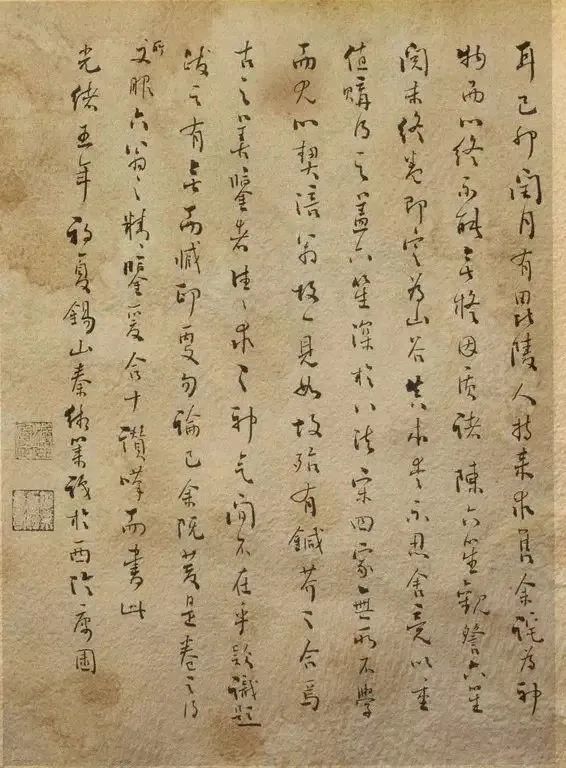 耳己卯閏月有毘陵人持來求售余詫為神
物而以終不能無疑因質諸陳六笙觀詧六笙
閱未終卷即定為山谷真本愛不忍舍竟以重
值購得之蓋六笙深於八法宋四家無所不學
而尤以契涪翁故一見如故殆有鍼芥之合焉
古之善鑒者往往求之神氣間不在乎款識題
跋之有無而贓印更勿論已余既慶是卷之得
所又服六翁之精鑒爰合十讚嘆而書此
光緒五年初夏錫山秦緗業識於西泠寓園